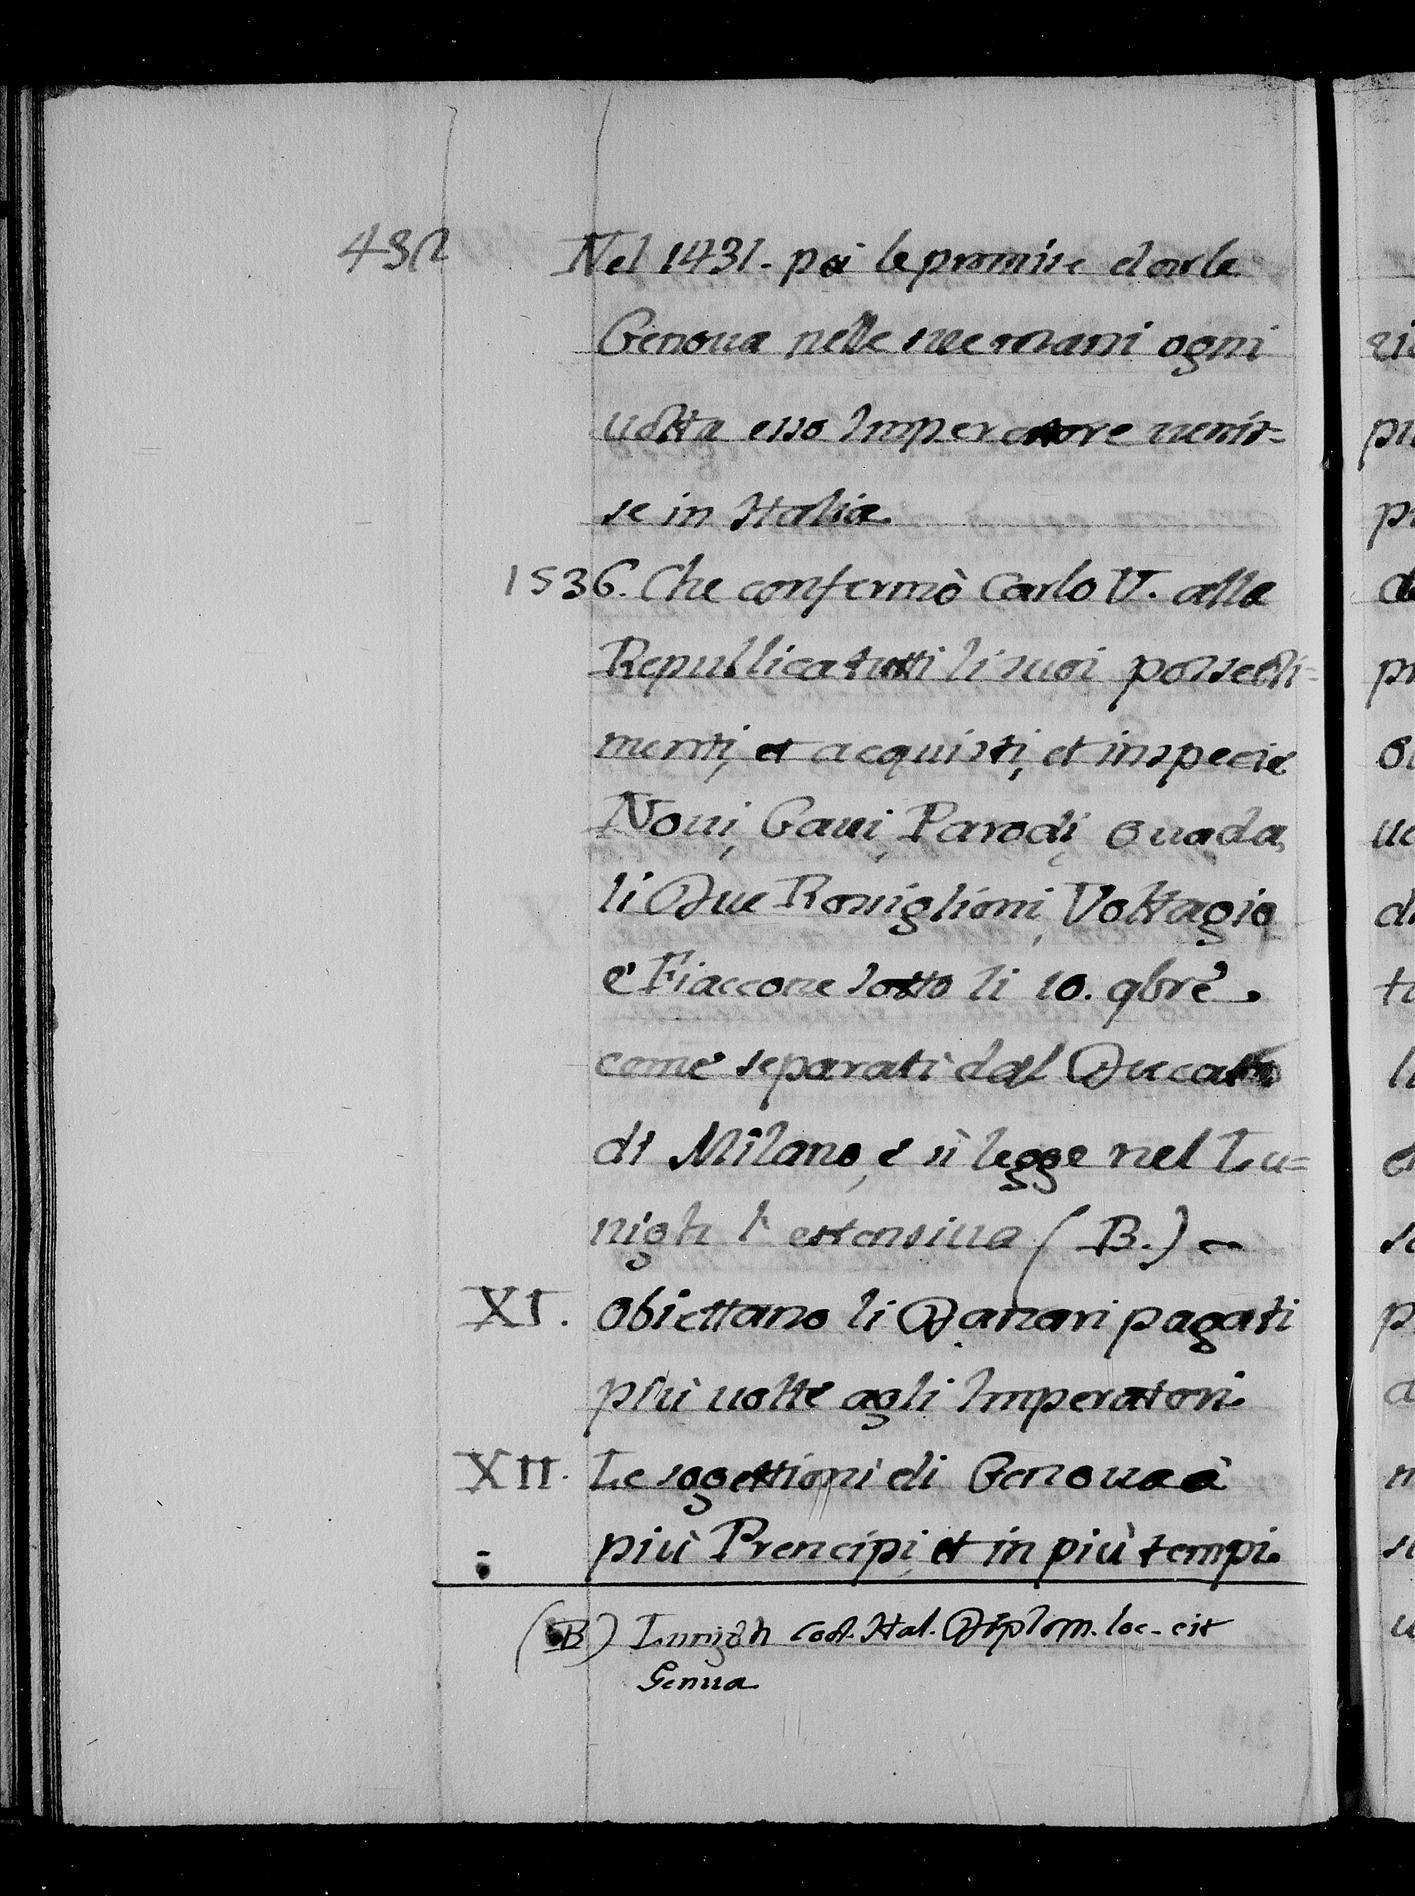 432
Nel 1431. poi le promise darle
Genoua nelle sue mani ogni
uolta esso Imperatore uenis=
se in Italia
1536. Che confermò Carlo V. alla
Republlica tutti li suoi possedi=
menti, et acquisti, et in specie
Noui, Gaui, Parodi, Ouada,
li Due Rouiglioni, Voltagio
e Fiaccone sotto li 10. qbre.
come separati dal Ducato
di Milano, e si legge nel Lu=
nigh l'estensiua (B.)
XI. Obiettano li Danari pagati
più uolte agli Imperatori.
XII. Le sogettioni di Genoua à
più Prencipi, et in più tempi.
(B) Lunigh Cod. Ital. Diplom. loc. cit
Genua